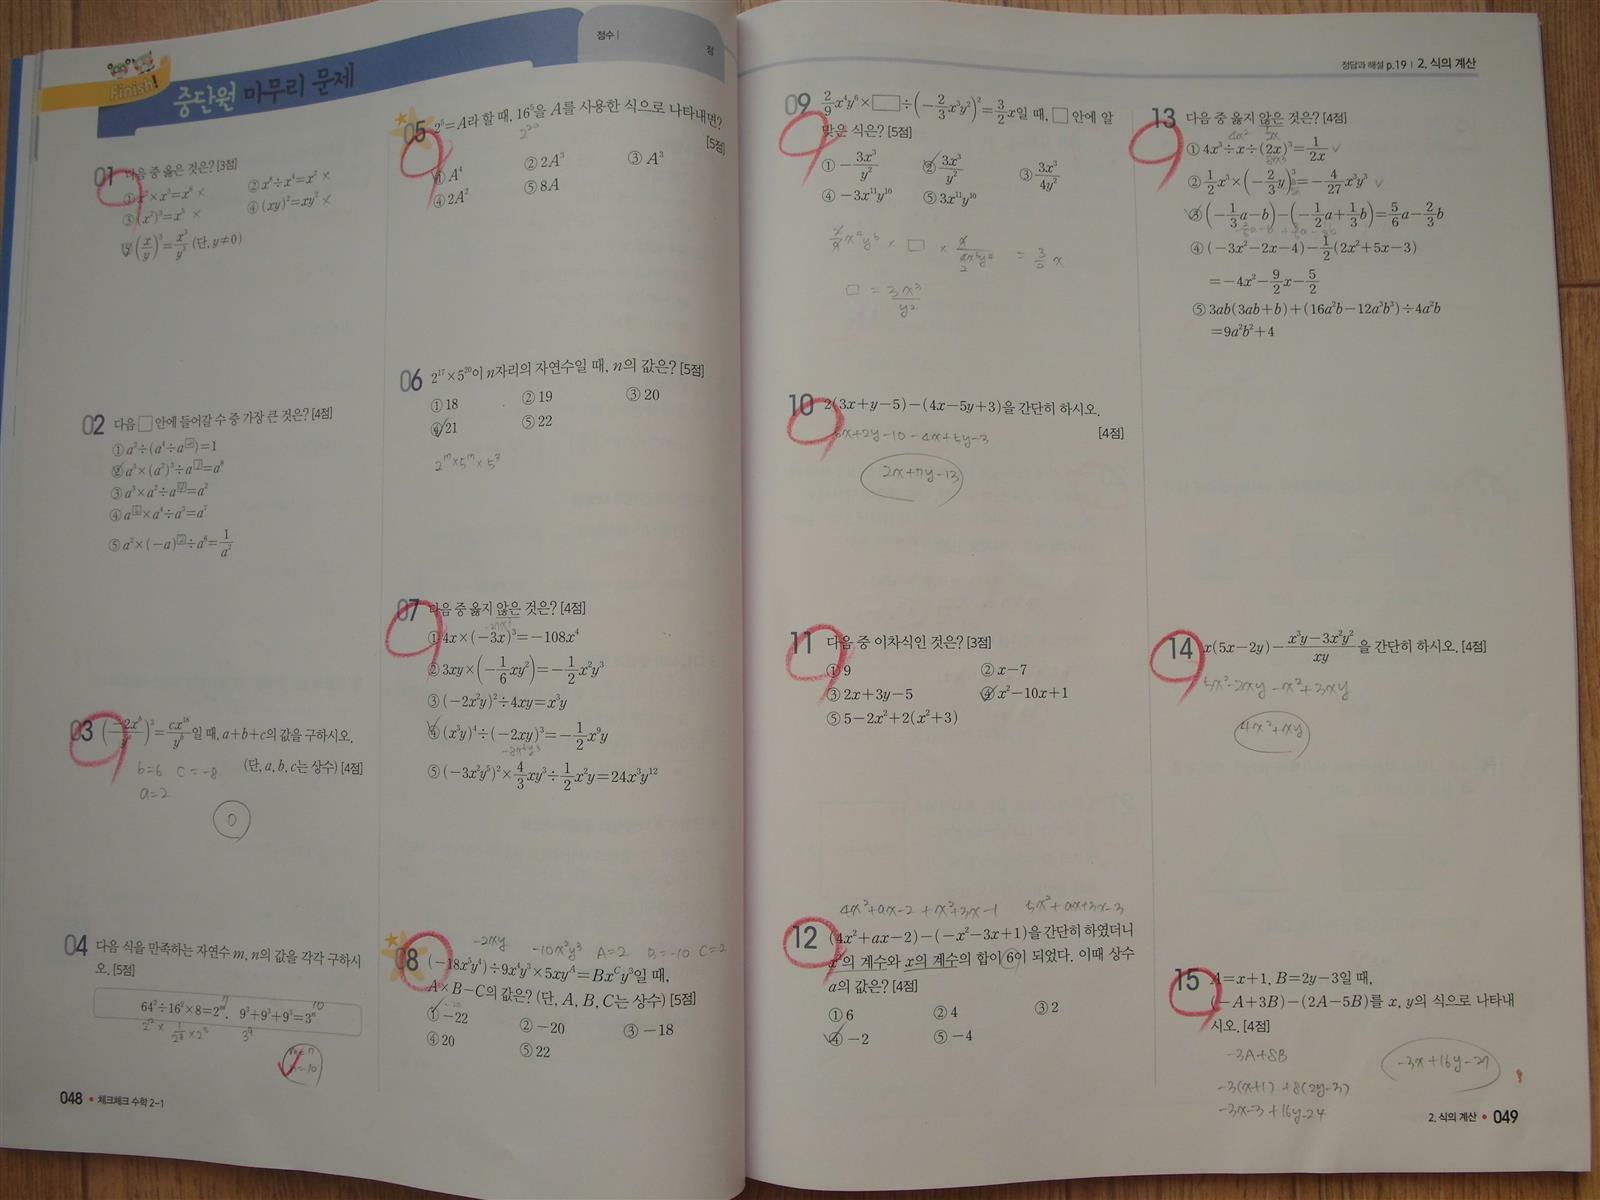 Finish!
중단원 마무리 문제
점수 |
점
01 다음 중 옳은 것은? [3점]
② x⁸÷x⁴=x² ×
③ (x²)³=x⁵ ×
④ (xy)²=xy² ×
(x/y)³=x³/y³ (단, y≠0)
02 다음 □ 안에 들어갈 수 중 가장 큰 것은? [4점]
03
일 때, a+b+c의 값을 구하시오.
(단, a, b, c는 상수) [4점]
b=6 c=-8
a=2
0
04 다음 식을 만족하는 자연수 m, n의 값을 각각 구하시
오. [5점]
048 • 체크체크 수학 2-1
05
=A라 할 때, 16⁵을 A를 사용한 식으로 나타내면?
2²⁰
[5점]
① A⁴
② 2A³
③ A³
④ 2A²
⑤ 8A
06 2¹⁷×5²⁰이 n자리의 자연수일 때, n의 값은? [5점]
① 18
② 19
③ 20
④ 21
⑤ 22
07 다음 중 옳지 않은 것은? [4점]
① 4x×(-3x)³=-108x⁴
② 3xy×(-1/6xy²)=-1/2x²y³
③ (-2x²y)²÷4xy=x³y
④ (x³y)⁴÷(-2xy)³=-1/2x⁹y
-8x³y³
⑤ (-3x²y⁵)²×4/3xy³÷1/2x²y=24x³y¹²
-2xy
-10x²y³ A=2 B=-10 C=2
08 (-18x⁵y⁴)÷9x⁴y³×5xyᴬ=Bxᶜy³일 때,
A×B-C의 값은? (단, A, B, C는 상수) [5점]
-20
① -22
② -20
③ -18
④ 20
⑤ 22
정답과 해설 p.19 | 2. 식의 계산
09 2/9x⁴y⁶×□÷(-2/3x³y²)²=3/2x일 때, □ 안에 알
맞은 식은? [5점]
① -3x³/y²
② 3x³/y²
③ 3x³/4y²
④ -3x¹¹y¹⁰
⑤ 3x¹¹y¹⁰
□ = 3x³/y²
10 2(3x+y-5)-(4x-5y+3)을 간단히 하시오.
[4점]
6x+2y-10-4x+5y-3
2x+7y-13
11 다음 중 이차식인 것은? [3점]
① 9
② x-7
③ 2x+3y-5
④ x²-10x+1
⑤ 5-2x²+2(x²+3)
4x²+ax-2+x²+3x-1
5x²+ax+3x-3
12 (4x²+ax-2)-(-x²-3x+1)을 간단히 하였더니
x²의 계수와 x의 계수의 합이 6이 되었다. 이때 상수
a의 값은? [4점]
① 6
② 4
③ 2
④ -2
⑤ -4
13 다음 중 옳지 않은 것은? [4점]
① 4x³÷x÷(2x)³=1/2x
② 1/2x³×(-2/3y)³=-4/27x³y³
③ (-1/3a-b)-(-1/2a+1/3b)=5/6a-2/3b
④ (-3x²-2x-4)-1/2(2x²+5x-3)
=-4x²-9/2x-5/2
⑤ 3ab(3ab+b)+(16a²b-12a³b³)÷4a²b
=9a²b²+4
14 x(5x-2y)-(x³y-3x²y²)/xy을 간단히 하시오. [4점]
5x²-2xy-x²+3xy
4x²+xy
15 A=x+1, B=2y-3일 때,
(-A+3B)-(2A-5B)를 x, y의 식으로 나타내
시오. [4점]
-3A+8B
-3(x+1)+8(2y-3)
-3x-3+16y-24
-3x+16y-27
2. 식의 계산 • 049